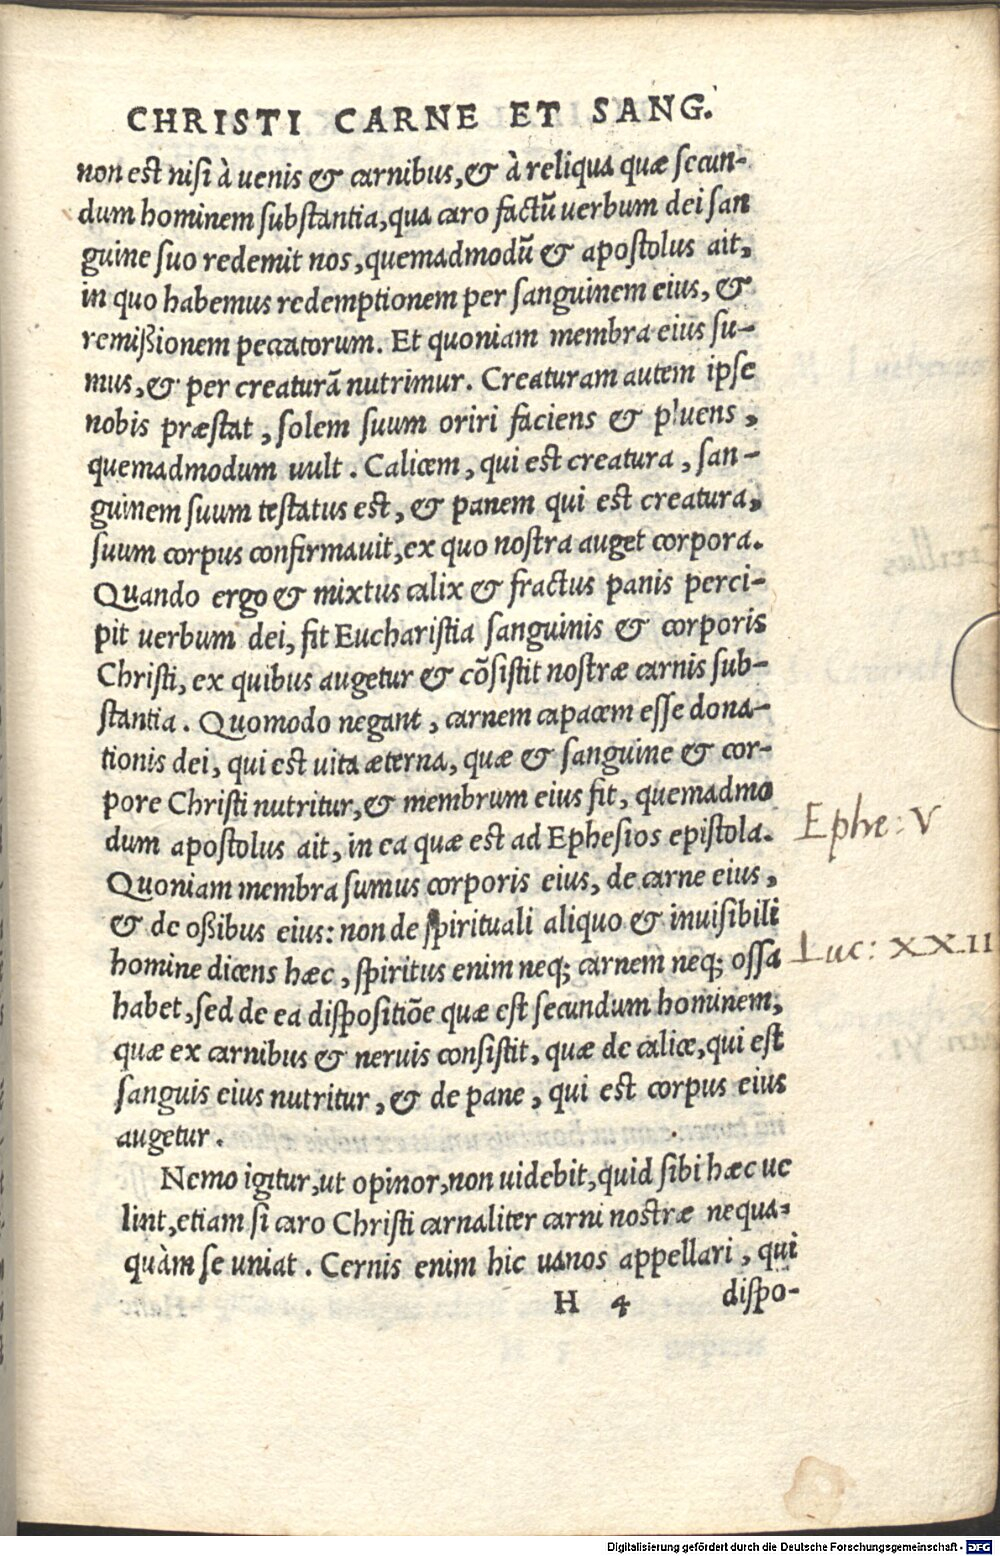 CHRISTI CARNE ET SANG.
non est nisi à uenis & carnibus, & à reliqua quæ secun-
dum hominem substantia, qua caro factũ uerbum dei san
guine suo redemit nos, quemadmodũ & apostolus ait,
in quo habemus redemptionem per sanguinem eius, &
remißionem peccatorum. Et quoniam membra eius su-
mus, & per creaturã nutrimur. Creaturam autem ipse
nobis præstat, solem suum oriri faciens & pluens,
quemadmodum uult. Calicem, qui est creatura, san-
guinem suum testatus est, & panem qui est creatura,
suum corpus confirmauit, ex quo nostra auget corpora.
Quando ergo & mixtus calix & fractus panis perci-
pit uerbum dei, fit Eucharistia sanguinis & corporis
Christi, ex quibus augetur & cõsistit nostræ carnis sub-
stantia. Quomodo negant, carnem capacem esse dona-
tionis dei, qui est uita æterna, quæ & sanguine & cor-
pore Christi nutritur, & membrum eius fit, quemadmo
dum apostolus ait, in ea quæ est ad Ephesios epistola.
Ephe: V
Quoniam membra sumus corporis eius, de carne eius,
& de oßibus eius: non de spirituali aliquo & inuisibili
homine dicens hæc, spiritus enim neq; carnem neq; ossa
Luc: XXII
habet, sed de ea dispositiõe quæ est secundum hominem,
quæ ex carnibus & neruis consistit, quæ de calice, qui est
sanguis eius nutritur, & de pane, qui est corpus eius
augetur.
Nemo igitur, ut opinor, non uidebit, quid sibi hæc ue
lint, etiam si caro Christi carnaliter carni nostræ nequa-
quàm se uniat. Cernis enim hic uanos appellari, qui
H 4 dispo-
Digitalisierung gefördert durch die Deutsche Forschungsgemeinschaft - DFG